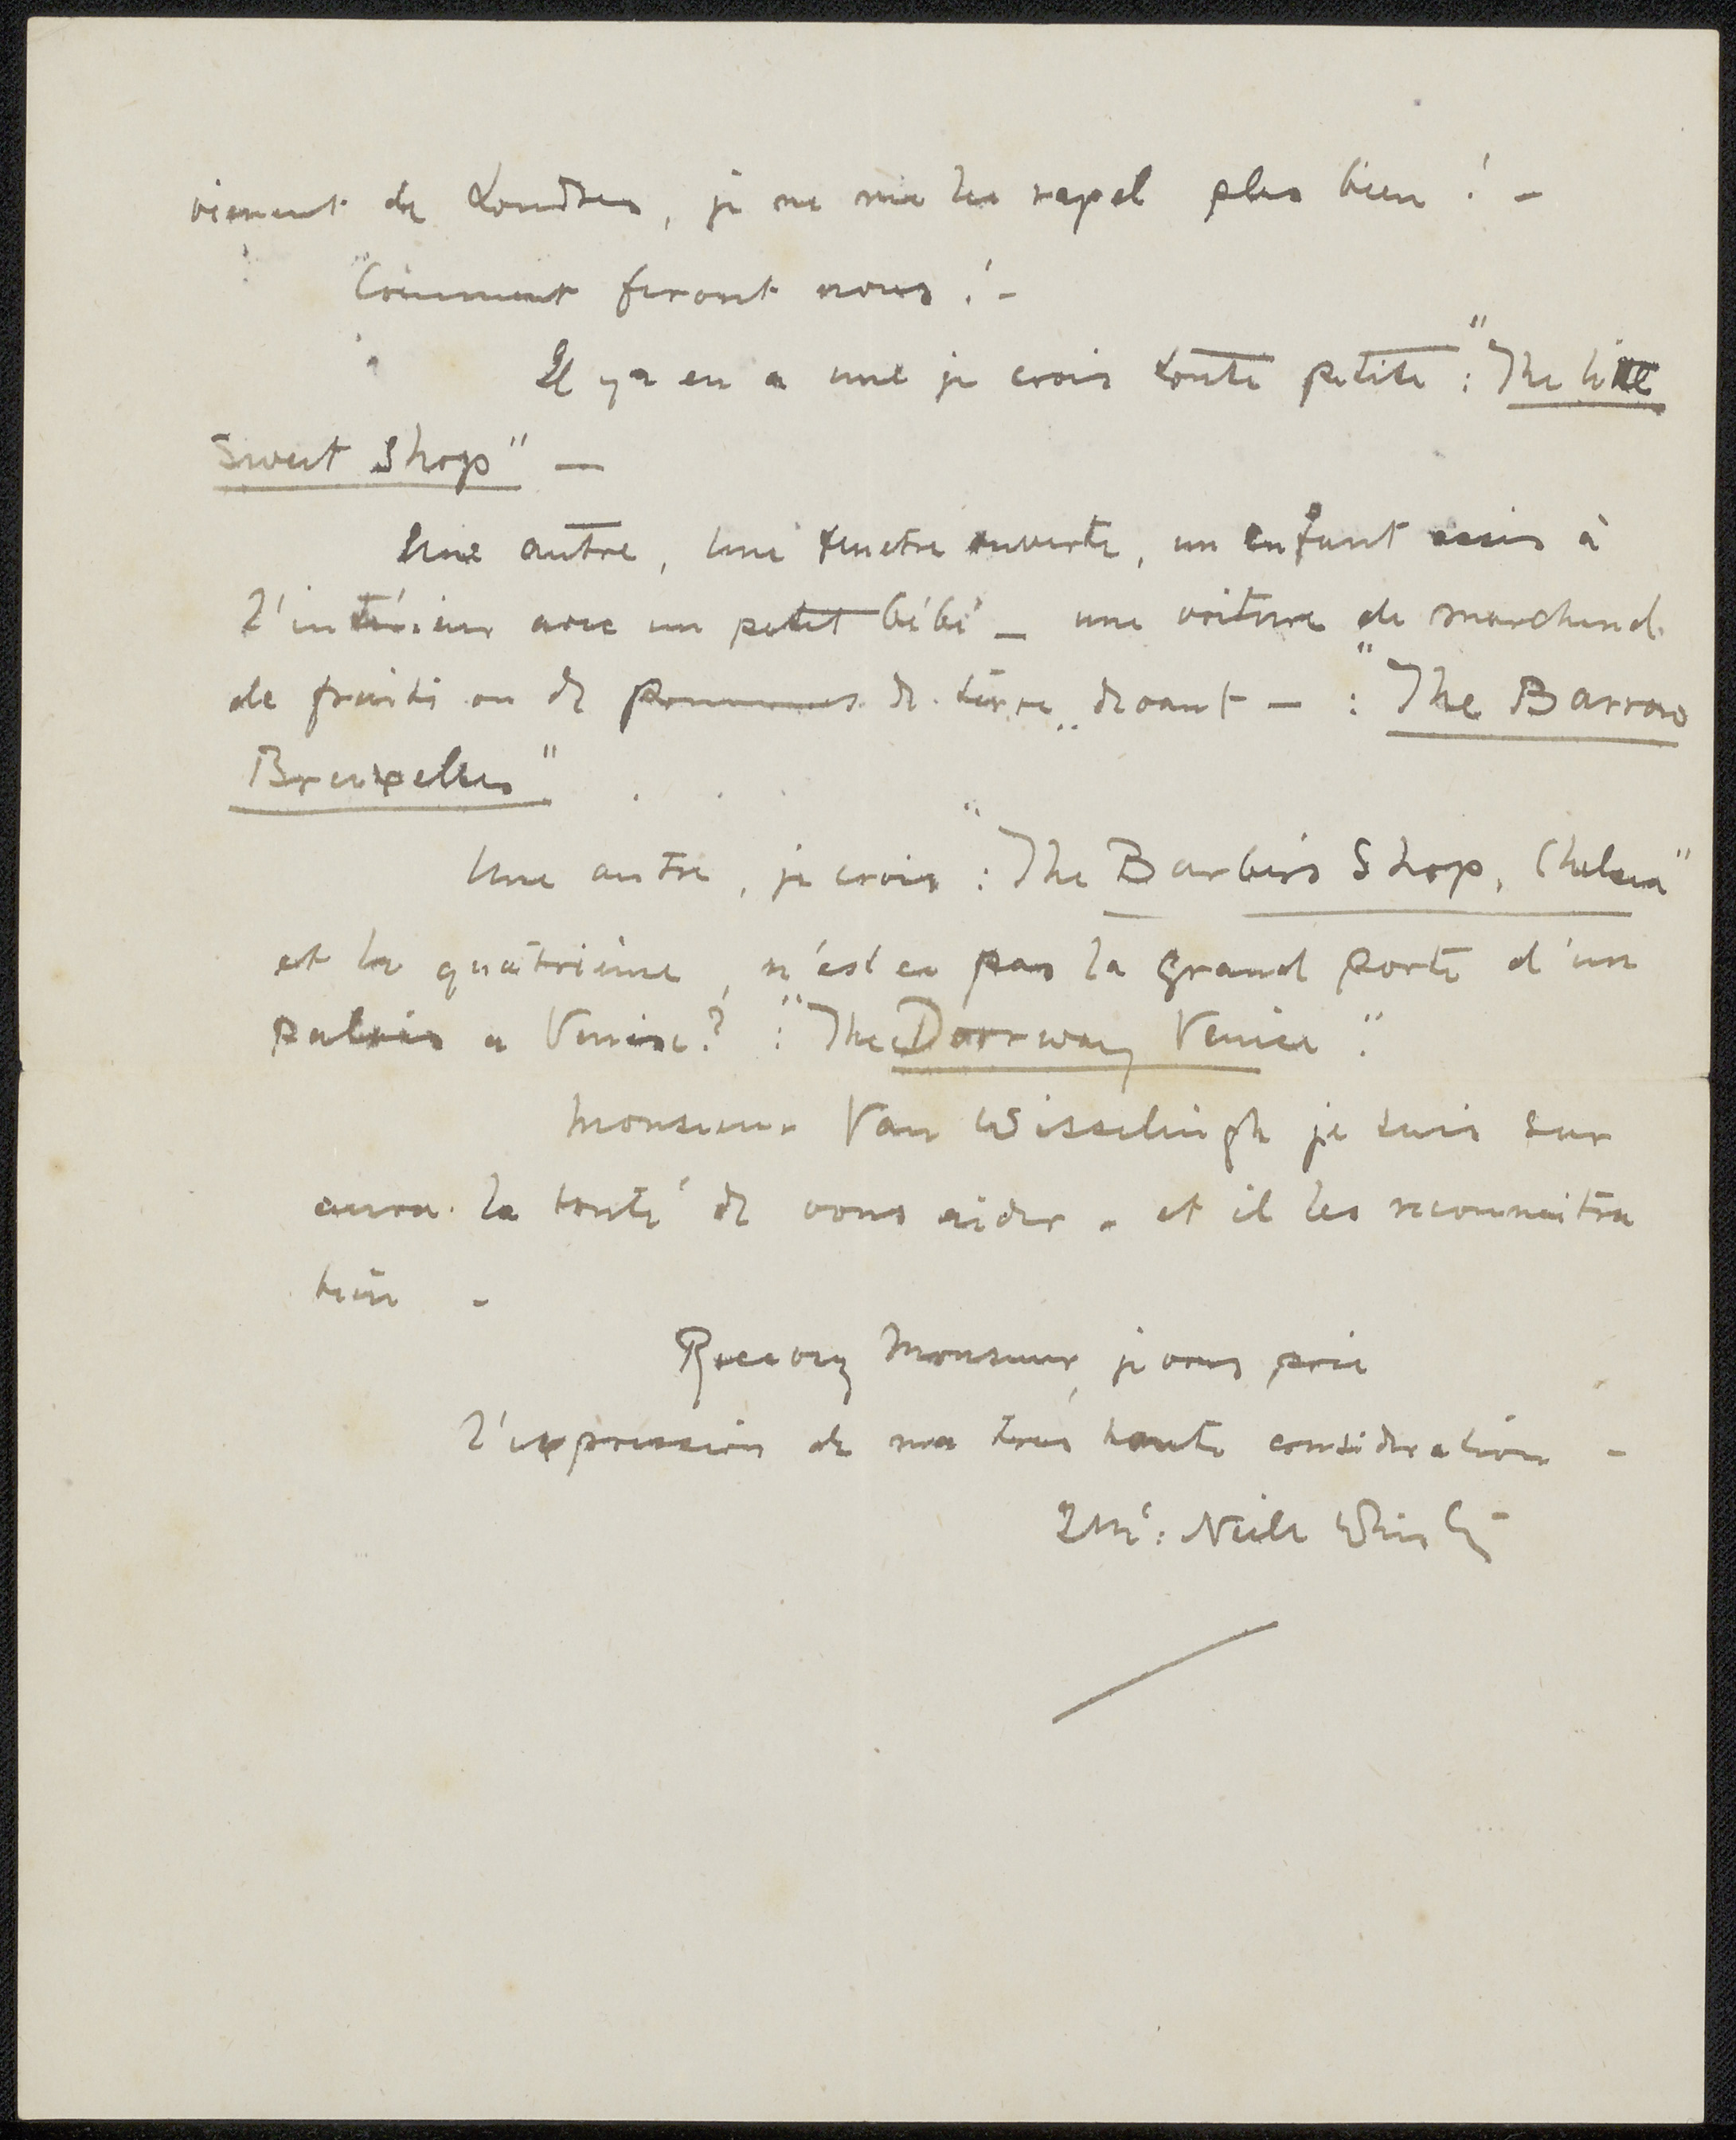 vienent de Londres, je ne me les rapel plus bien! –
Comment feront nous! –
Il y a en a une je crois toute petite : "The little
Sweet Shop" –
Une autre, une fenetre ouverte, un enfant assis à
l'intérieur avec un petit bébé – une voiture de marchand
de fruits ou de pommes de terre devant – : "The Barrow
Bruxelles"
Une autre, je crois : "The Barbers Shop, Chelsea"
et la quatrième, n'est ce pas la grand porte d'un
palais a Venise? : "The Doorway Venice".
Monsieur Van Wisselingh je suis sur
aura la bonté de vous aider – et il les reconnaitra
bien –
Recevez Monsieur, je vous prie
l'expression de ma très haute consideration –